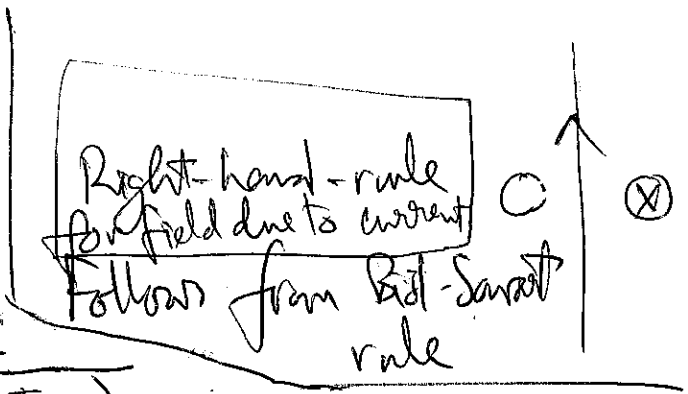 Right-hand-rule
for field due to current
Follows from Biot-Savart
rule